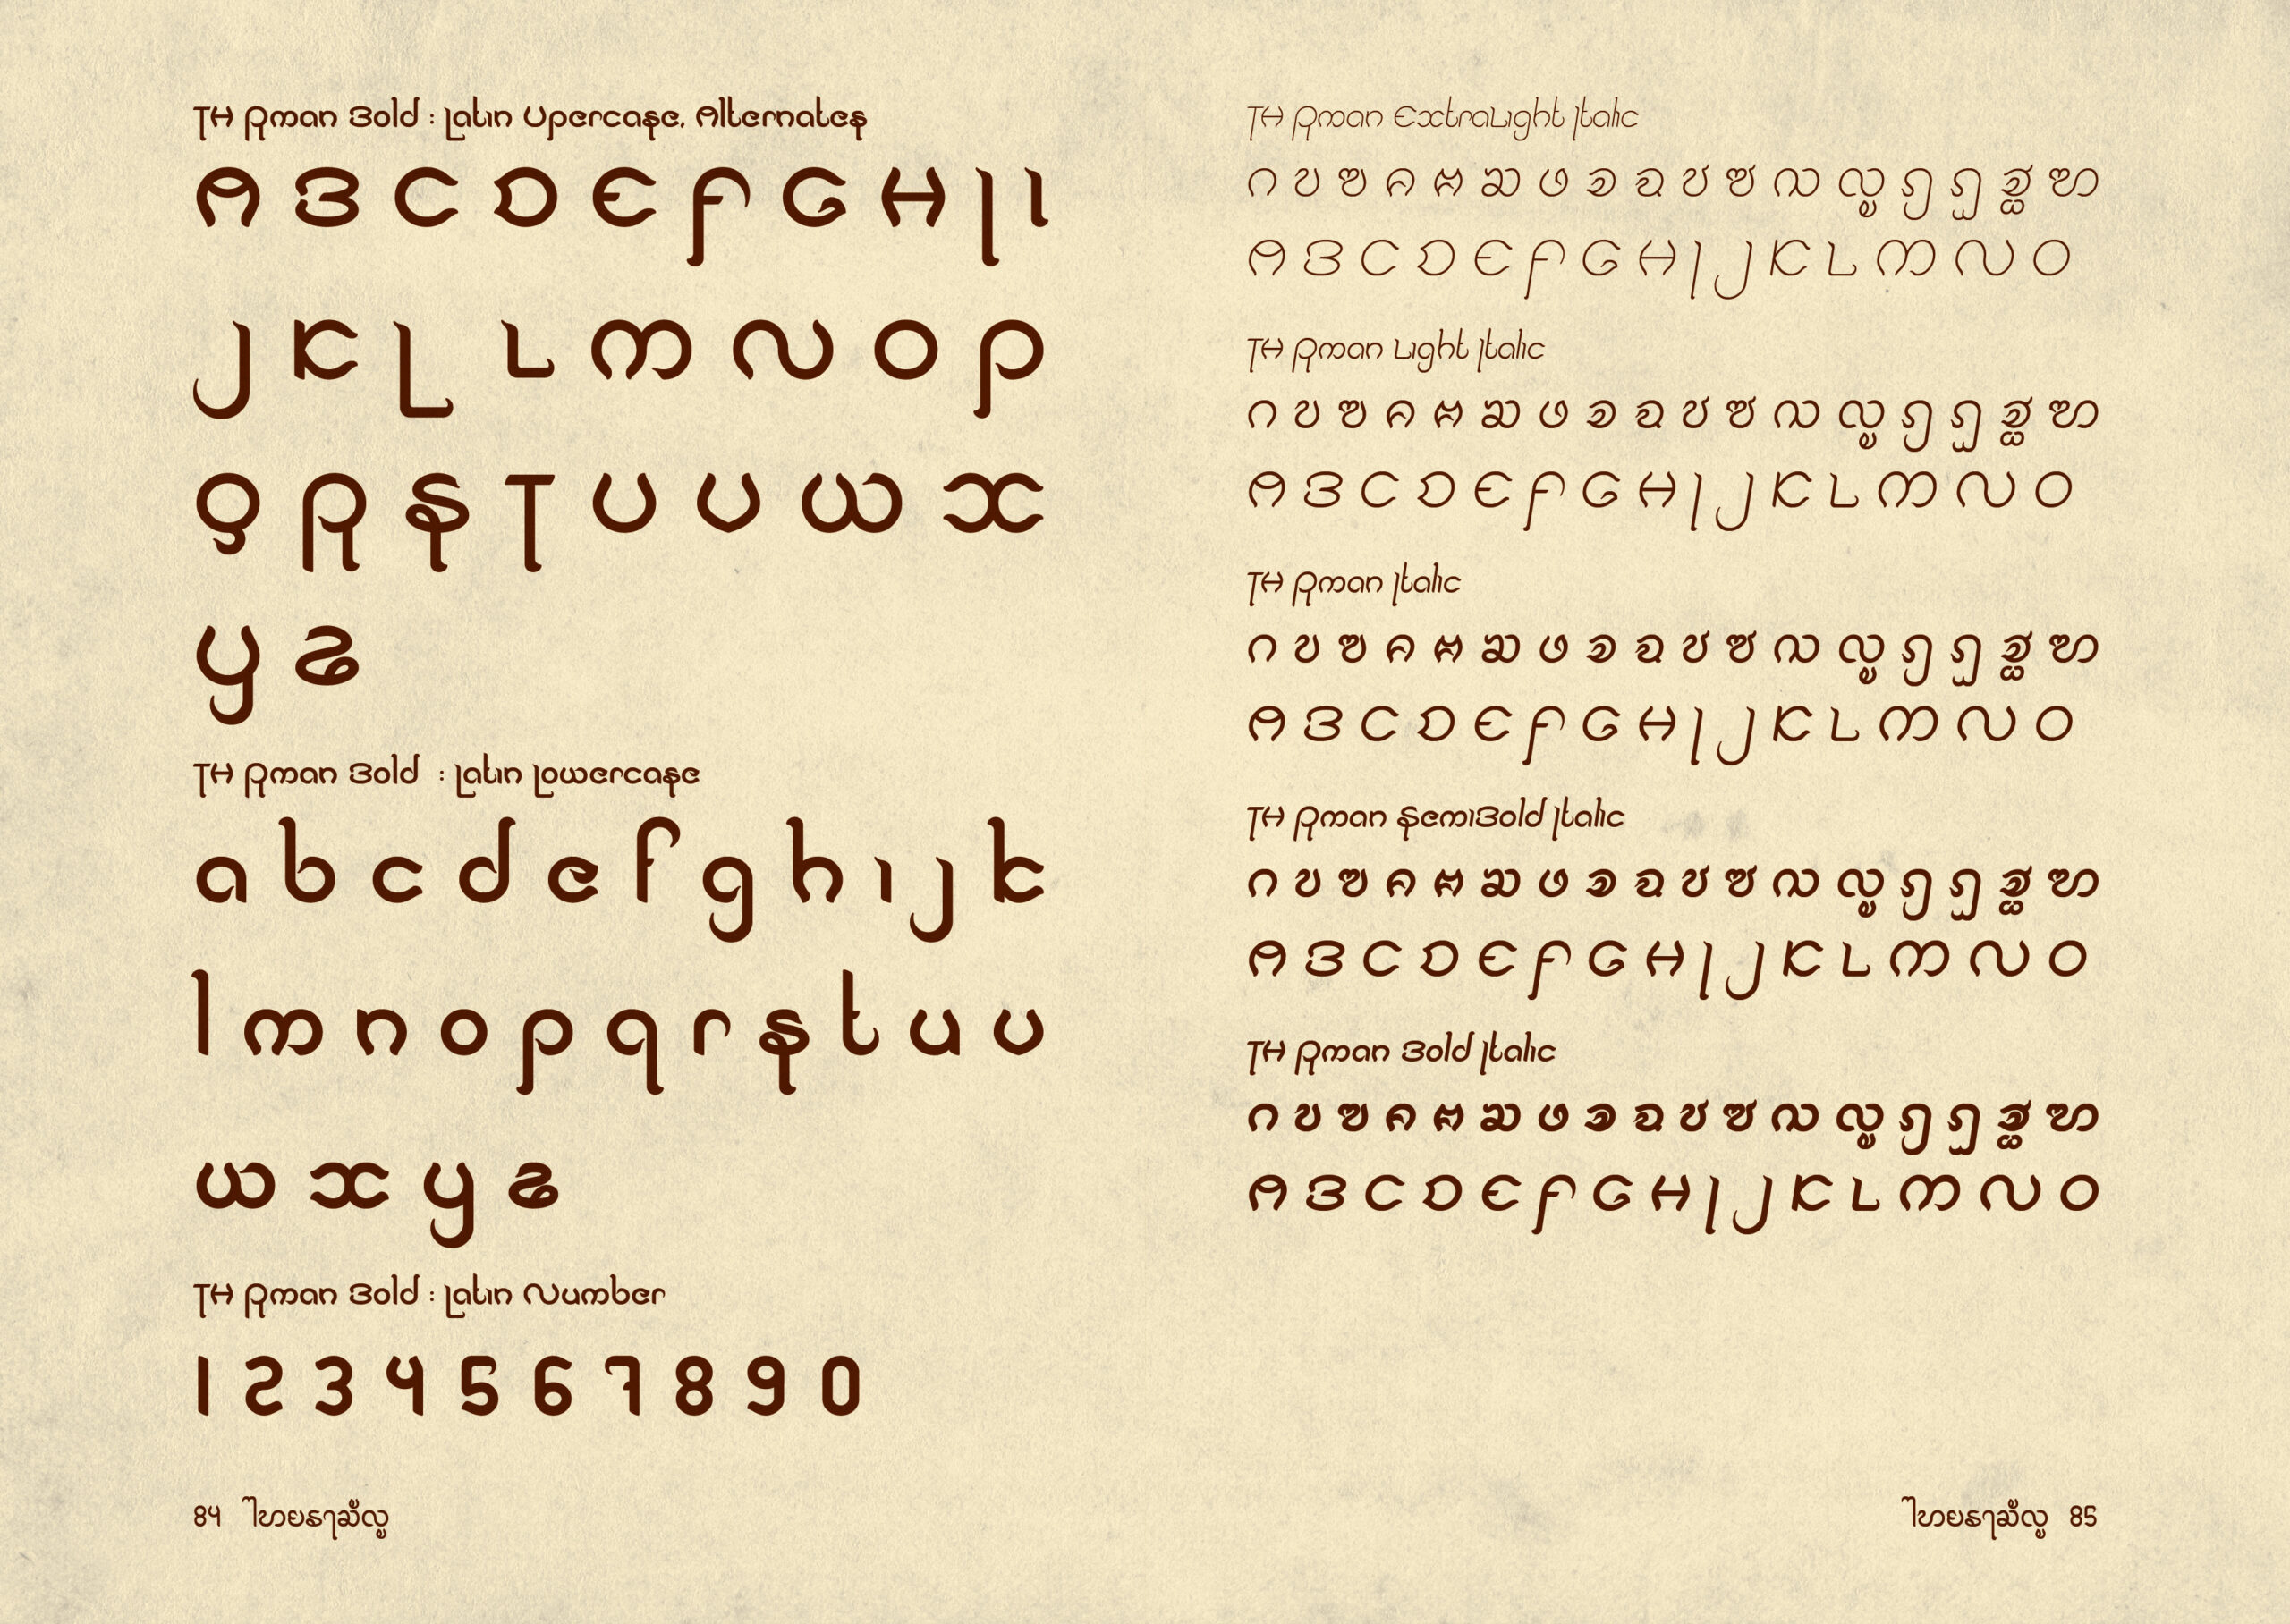 TH Rman Bold : Latin Upercase, Alternates
A B C D E F G H I I
J K L L M N O P
Q R S T U V W X
Y Z
TH Rman Bold : Latin Lowercase
a b c d e f g h i j k
l m n o p q r s t u v
w x y z
TH Rman Bold : Latin Number
1 2 3 4 5 6 7 8 9 0
84
TH Rman ExtraLight Italic
ก ข ฃ ค ฅ ฆ ง จ ฉ ช ซ ฌ ญ ฎ ฏ ฐ ฑ
A B C D E F G H I J K L M N O
TH Rman Light Italic
ก ข ฃ ค ฅ ฆ ง จ ฉ ช ซ ฌ ญ ฎ ฏ ฐ ฑ
A B C D E F G H I J K L M N O
TH Rman Italic
ก ข ฃ ค ฅ ฆ ง จ ฉ ช ซ ฌ ญ ฎ ฏ ฐ ฑ
A B C D E F G H I J K L M N O
TH Rman SemiBold Italic
ก ข ฃ ค ฅ ฆ ง จ ฉ ช ซ ฌ ญ ฎ ฏ ฐ ฑ
A B C D E F G H I J K L M N O
TH Rman Bold Italic
ก ข ฃ ค ฅ ฆ ง จ ฉ ช ซ ฌ ญ ฎ ฏ ฐ ฑ
A B C D E F G H I J K L M N O
85